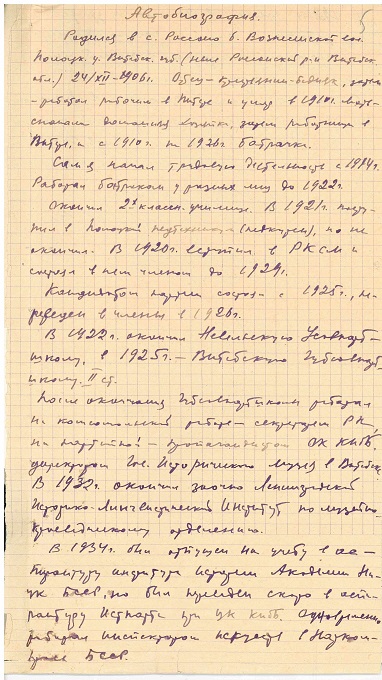 5
Автобиография.
Родился в с. Россоно б. Вознесенской вол.
Полоцк. у. Витебск. губ. (ныне Россонский р-н Витебск.
обл.) 24/XII-1906г. Отец - крестьянин-бедняк, затем
работал рабочим в Питере и умер в 1910г. Мать
сначала домашняя хозяйка, затем работница в
Питере, и с 1910г. по 1926г батрачка.
Сам я начал трудовую деятельность с 1914г.
Работал батраком у разных лиц до 1922г.
Окончил 2х классн. училище. В 1921г. посту-
пил в Полоцкий педтехникум (педкурсы), но не
окончил. В 1920г. вступил в РКСМ и
состоял в нем членом до 1929г.
Кандидатом партии состою с 1925г., пе-
реведен в члены в 1926г.
В 1922г. окончил Невельскую Усовпарт-
школу, в 1925г. - Витебскую Губсовпарт-
школу II ст.
После окончания Губсовпартшколы работал
на комсомольской работе - секретарем РК,
на партийной - пропагандистом ОК КП(б)Б,
директором Гос. Исторического музея в Витебске
В 1932г. окончил заочно Ленинградский
Историко-Лингвистический Институт по музейно-
краеведческому отделению.
В 1934г. был отпущен на учебу в ас-
пирантуру института истории Академии На-
ук БССР, но был переведен скоро в аспи-
рантуру Истпарта при ЦК КП(б)Б. Одновременно
работал инспектором искусств в Нарком-
просе БССР.